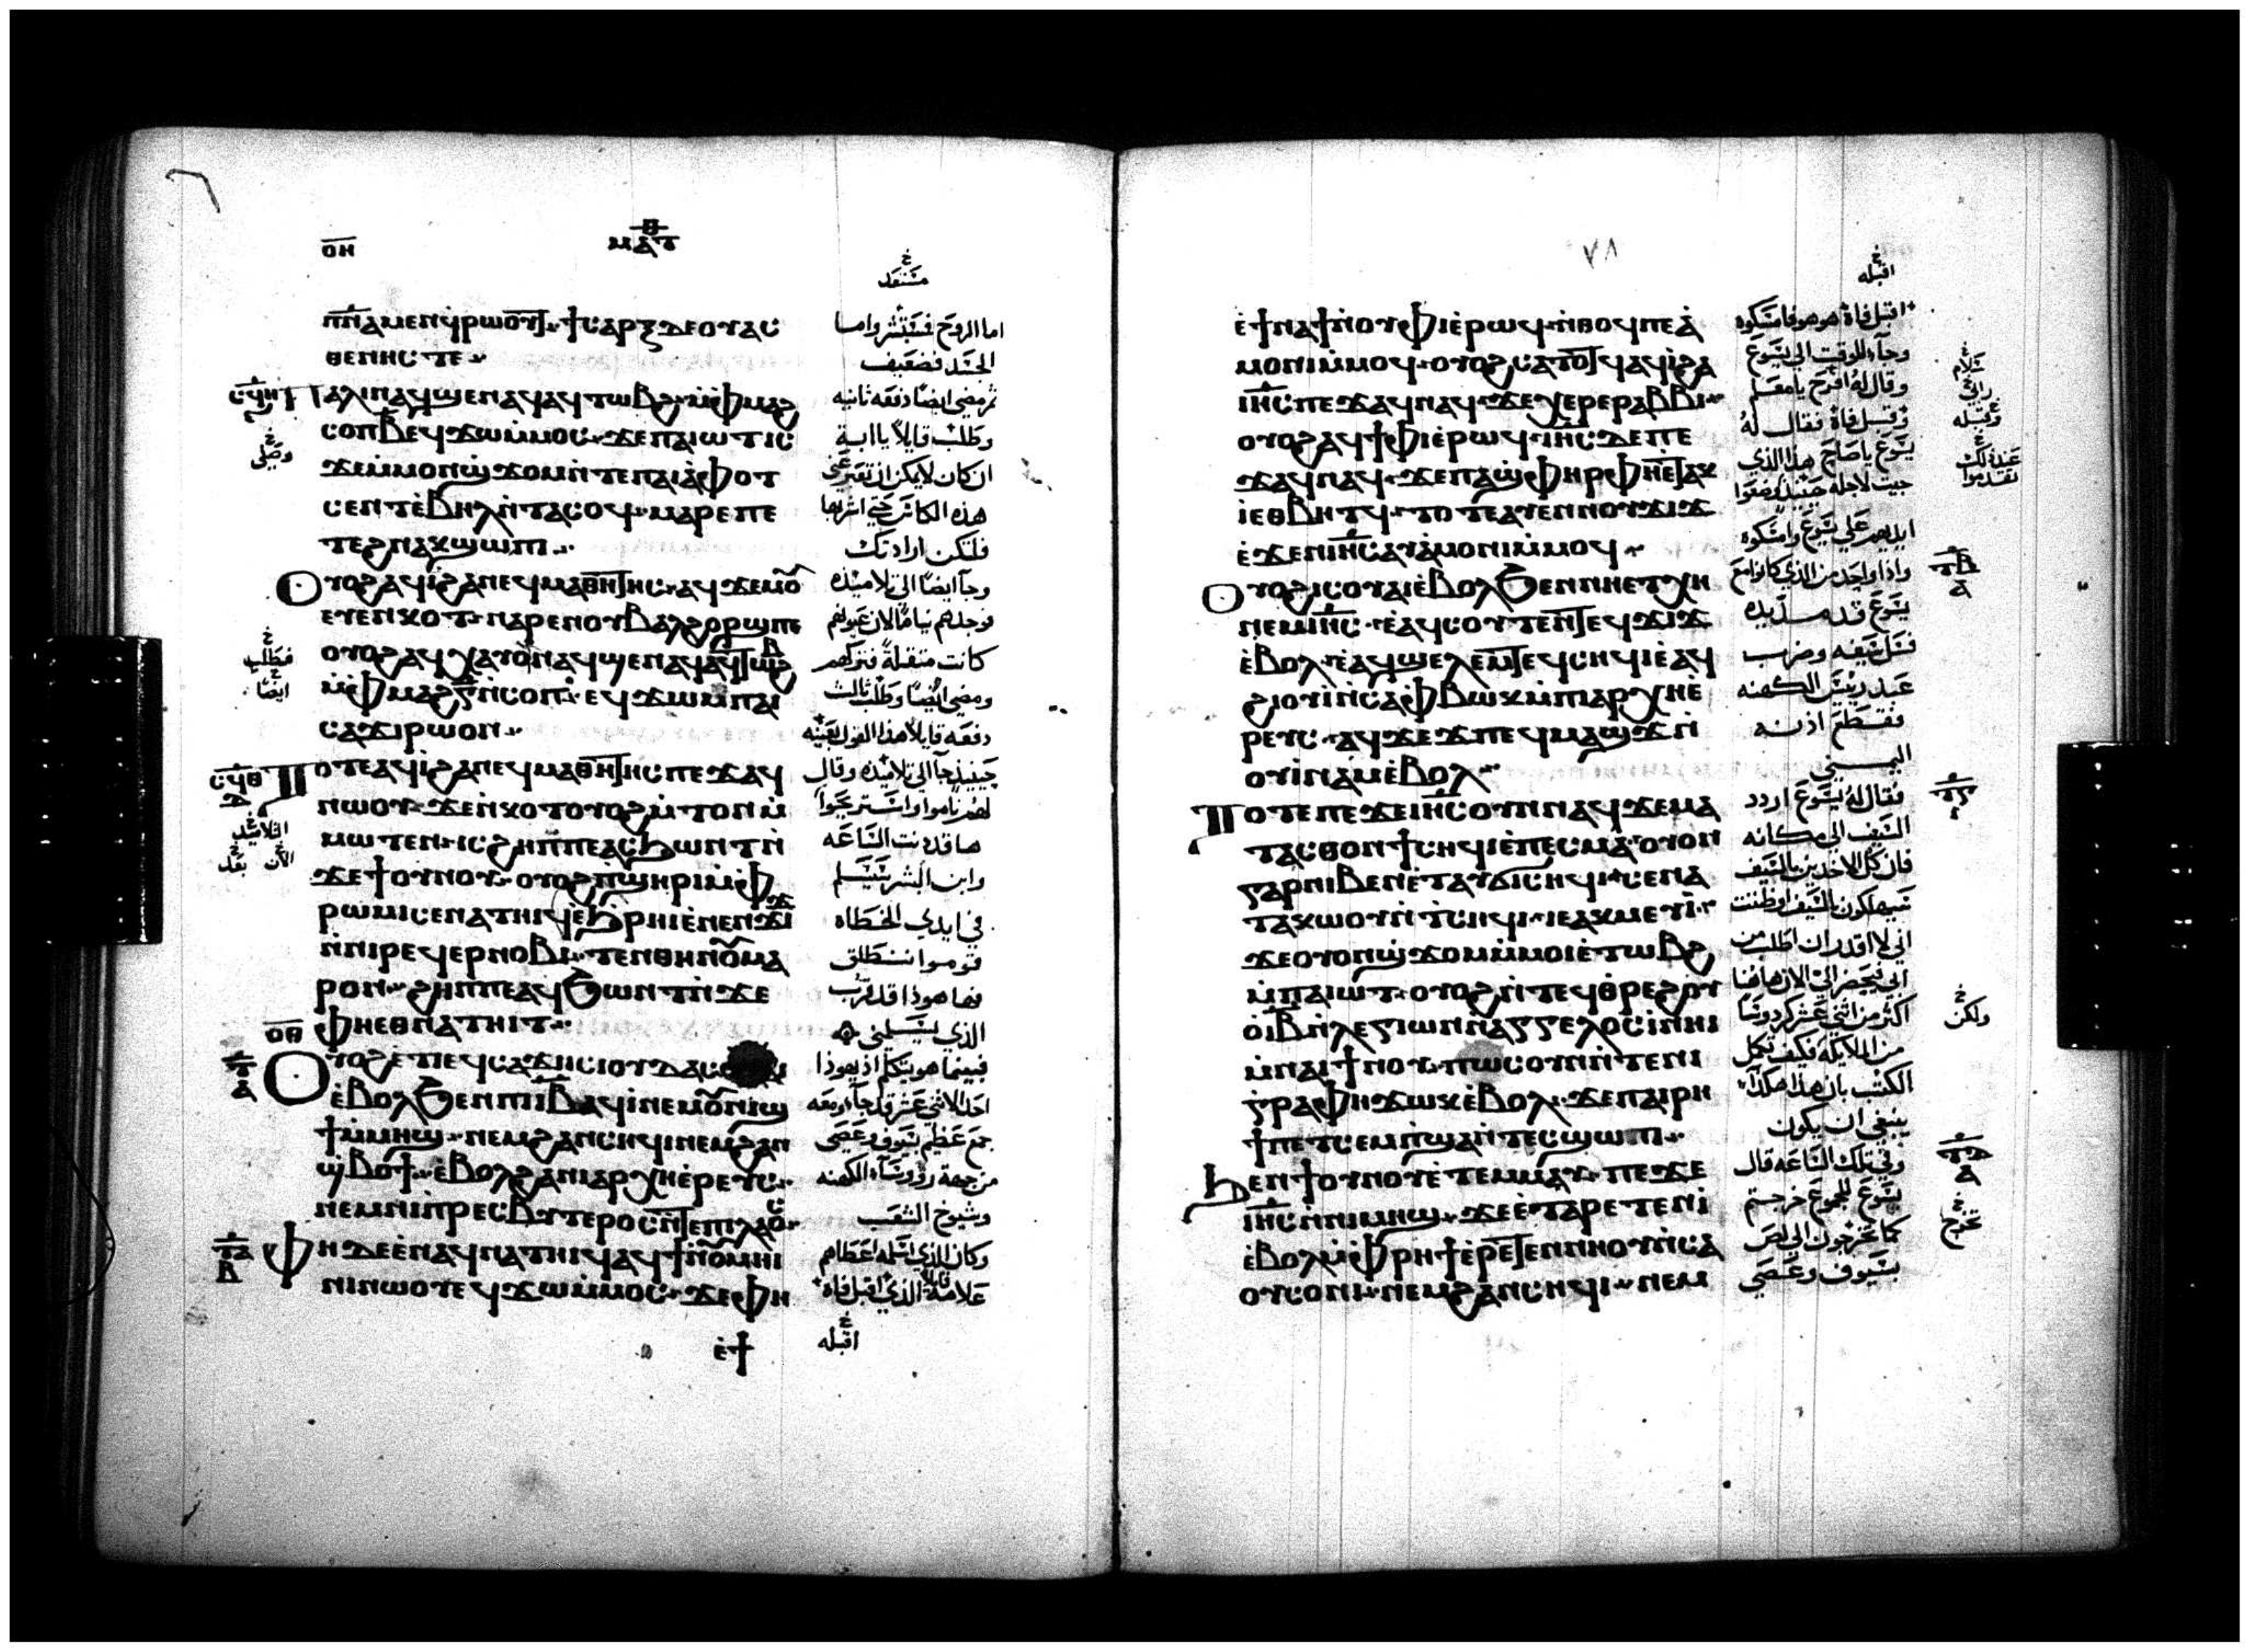 ⲟⲏ
ⲙⲁⲧ
ⲡ̅ⲛ̅ⲁ̅ ⲙⲉⲛ ϥⲣⲱⲟⲩⲧ ϯⲥⲁⲣⲝ ⲇⲉ ⲟⲩⲁⲥ
ⲑⲉⲛⲏⲥ ⲧⲉ
ⲡⲁⲗⲓⲛ ⲁϥϣⲉⲛⲁϥ ⲁϥⲧⲱⲃϩ ⲙ̀ⲫⲙⲁϩ
ⲥⲟⲡ ⲃ̅ ⲉϥϫⲱ ⲙ̀ⲙⲟⲥ ϫⲉ ⲡⲁⲓⲱⲧ ⲓⲥ
ϫⲉ ⲙ̀ⲙⲟⲛ ϣϫⲟⲙ ⲛ̀ⲧⲉ ⲡⲁⲓⲁ̀ⲫⲟⲧ
ⲥⲉⲛⲧ ⲉ̀ⲃⲏⲗ ⲛ̀ⲧⲁⲥⲟϥ ⲙⲁⲣⲉ ⲡⲉ
ⲧⲉϩⲛⲁⲕ ϣⲱⲡⲓ
ⲟⲩⲟϩ ⲁϥⲓ̀ ϩⲁ ⲛⲉϥⲙⲁⲑⲏⲧⲏⲥ ⲁϥϫⲉⲙⲟ̅
ⲉⲩⲉⲛⲕⲟⲧ ⲛⲁⲣⲉ ⲛⲟⲩⲃⲁⲗ ϩⲟⲣϣ ⲡⲉ
ⲟⲩⲟϩ ⲁϥⲭⲁⲩ ⲟⲛ ⲁϥϣⲉⲛⲁϥ ⲁϥⲧⲱⲃϩ
ⲙ̀ⲫⲙⲁϩ ⲅ̅ ⲛ̀ⲥⲟⲡ ⲉϥϫⲱ ⲙ̀ⲡⲁⲓ
ⲥⲁϫⲓ ⲣⲱ ⲟⲛ
ⲧⲟⲧⲉ ⲁϥⲓ̀ ϩⲁ ⲛⲉϥⲙⲁⲑⲏⲧⲏⲥ ⲡⲉϫⲁϥ
ⲛⲱⲟⲩ ϫⲉ ⲛ̀ⲕⲟⲧ ⲟⲩⲟϩ ⲙ̀ⲧⲟⲛ ⲙ̀
ⲙⲱⲧⲉⲛ ⲓⲥ ϩⲏⲡⲡⲉ ⲁⲥϧⲱⲛⲧ ⲛ̀
ϫⲉ ϯⲟⲩⲛⲟⲩ ⲟⲩⲟϩ ⲡϣⲏⲣⲓ ⲙ̀ⲫ
ⲣⲱⲙⲓ ⲥⲉⲛⲁⲧⲏⲓϥ ⲉ̀ϧⲣⲏⲓ ⲉ̀ⲛⲉⲛϫⲓϫ
ⲛ̀ⲛⲓⲣⲉϥⲉⲣⲛⲟⲃⲓ ⲧⲉⲛ ⲑⲏⲛⲟ̅ ⲙⲁ
ⲣⲟⲛ ϩⲏⲡⲡⲉ ⲁϥϧⲱⲛⲧ ⲛ̀ϫⲉ
ⲫⲏⲉⲑⲛⲁⲧⲏⲓⲧ
ⲟⲩⲟϩ ⲉ̀ⲧⲓ ⲉϥⲥⲁϫⲓ ⲓⲥ ⲓⲟⲩⲇⲁⲥ
ⲉ̀ⲃⲟⲗ ϧⲉⲛ ⲡⲓⲓ̅ⲃ̅ ⲁϥⲓ̀ ⲛⲉⲙ ⲟⲩⲛⲓϣ
ϯ ⲙ̀ⲙⲏϣ ⲛⲉⲙ ϩⲁⲛⲥⲏϥⲓ ⲛⲉⲙ ϩⲁⲛ
ϣⲃⲟϯ ⲉ̀ⲃⲟⲗ ϩⲁ ⲛⲓⲁⲣⲭⲏⲉ̀ⲣⲉⲩⲥ
ⲛⲉⲙ ⲛⲓⲡⲣⲉⲥⲃⲩⲧⲉⲣⲟⲥ ⲛ̀ⲧⲉ ⲡⲓⲗⲁⲟⲥ
ⲫⲏ ⲇⲉ ⲉ̀ⲛⲁϥⲛⲁⲧⲏⲓϥ ⲁϥϯ ⲛ̀ⲟⲩⲙⲏⲓ
ⲛⲓ ⲛⲱⲟⲩ ⲉϥϫⲱ ⲙ̀ⲙⲟⲥ ϫⲉ ⲫⲏ
ⲉ̀ϯ
اما الروح فمستبشر واما
الجسد فضعيف
ثم مضى ايضا دفعه ثانيه
وطلب قايلا يا ابة
ان كان لا يمكن ان تعبر عني
هذه الكاس حتى اشربها
فلتكن ارادتك
وجا ايضا الى تلاميذه
فوجدهم نياما لان عيونهم
كانت متقلة فتركهم
ومضى ايضا وطلب ثالث
دفعه قايلا هذا القول بعينه
حينيذ جا الى تلاميذه وقال
لهم ناموا واستريحوا
ها قد دنت الساعه
وابن البشر يسلم
في ايدي الخطاه
قوموا ننطلق
فها هوذا قد قرب
الذي يسلمني
فبينما هو يتكلم اذ يهوذا
احد الاثني عشر قد جا ومعه
جمع عظيم بسيوف وعصي
من جهة رووسا الكهنه
وشيوخ الشعب
وكان الذي اسلمه اعطاهم
علامة قايلا الذي اقبل فاه
اقبله
٧٨
ⲉ̀ϯⲛⲁϯ ⲛ̀ⲟⲩⲫⲓ ⲉ̀ⲣⲱϥ ⲛ̀ⲑⲟϥ ⲡⲉ ⲁ̀
ⲙⲟⲛⲓ ⲙ̀ⲙⲟϥ ⲟⲩⲟϩ ⲥⲁⲧⲟⲧϥ ⲁϥⲓ̀ ϩⲁ
ⲓⲏ̅ⲥ̅ ⲡⲉϫⲁϥ ⲛⲁϥ ϫⲉ ⲭⲉⲣⲉ ⲣⲁⲃⲃⲓ
ⲟⲩⲟϩ ⲁϥϯⲫⲓ ⲉ̀ⲣⲱϥ ⲓⲏ̅ⲥ̅ ⲇⲉ ⲡⲉ
ϫⲁϥ ⲛⲁϥ ϫⲉ ⲡⲁϣⲫⲏⲣ ⲫⲏⲉⲧⲁⲕ
ⲓ̀ ⲉⲑⲃⲏⲧϥ ⲧⲟⲧⲉ ⲁⲩⲉⲛ ⲛⲟⲩϫⲓϫ
ⲉ̀ϫⲉⲛ ⲓⲏ̅ⲥ̅ ⲁⲩⲁ̀ⲙⲟⲛⲓ ⲙ̀ⲙⲟϥ
ⲟⲩⲟϩ ⲓⲥ ⲟⲩⲁⲓ ⲉ̀ⲃⲟⲗ ϧⲉⲛ ⲛⲏⲉⲧⲭⲏ
ⲛⲉⲙ ⲓⲏ̅ⲥ̅ ⲉ̀ⲁϥⲥⲟⲩⲧⲉⲛ ⲧⲉϥϫⲓϫ
ⲉ̀ⲃⲟⲗ ⲉ̀ⲁϥϣⲉⲗⲉⲙ ⲧⲉϥⲥⲏϥⲓ ⲉ̀ⲁϥ
ϩⲓⲟⲩⲓ̀ ⲛ̀ⲥⲁ ⲫⲃⲱⲕ ⲙ̀ⲡⲓⲁⲣⲭⲏⲉ̀
ⲣⲉⲩⲥ ⲁϥϫⲉϫⲡⲉϥⲙⲁϣϫ ⲛ̀
ⲟⲩⲓ̀ⲛⲁⲙ ⲉ̀ⲃⲟⲗ
ⲧⲟⲧⲉ ⲡⲉϫⲉ ⲓⲏ̅ⲥ̅ ⲟⲩⲛ ⲛⲁϥ ϫⲉ ⲙⲁ
ⲧⲁⲥⲑⲟ ⲛ̀ϯⲥⲏϥⲓ ⲉ̀ⲡⲉⲥⲙⲁ ⲟⲩⲟⲛ
ⲅⲁⲣ ⲛⲓⲃⲉⲛ ⲉ̀ⲧⲁⲩϭⲓⲥⲏϥⲓ ⲥⲉⲛⲁ
ⲧⲁⲕⲱⲟⲩ ⲛ̀ⲧⲥⲏϥⲓ ⲓⲉ ⲁⲕⲙⲉⲩⲓ̀
ϫⲉ ⲟⲩⲟⲛ ϣϫⲟⲙ ⲙ̀ⲙⲟⲓ ⲉ̀ⲧⲱⲃϩ
ⲙ̀ⲡⲁⲓⲱⲧ ⲟⲩⲟϩ ⲛ̀ⲧⲉϥⲑⲣⲉ ϩⲟⲩ
ⲟ̀ ⲓ̅ⲃ̅ ⲛ̀ⲗⲉⲅⲓⲱⲛ ⲛ̀ⲁⲅⲅⲉⲗⲟⲥ ⲓ̀ ⲛⲏⲓ
ⲙ̀ⲛⲁⲓ ϯⲛⲟⲩ ⲡⲱⲥ ⲟⲩⲛ ⲛ̀ⲧⲉ ⲛⲓ
ⲅⲣⲁⲫⲏ ϫⲱⲕ ⲉ̀ⲃⲟⲗ ϫⲉ ⲡⲁⲓⲣⲏ
ϯ ⲡⲉⲧⲥⲉⲙⲡϣⲁ ⲛ̀ⲧⲉⲥϣⲱⲡⲓ
ϧⲉⲛ ϯⲟⲩⲛⲟⲩ ⲉ̀ⲧⲉⲙⲙⲁⲩ ⲡⲉϫⲉ
ⲓⲏ̅ⲥ̅ ⲛ̀ⲛⲓⲙⲏϣ ϫⲉ ⲉ̀ⲧⲁⲣⲉⲧⲉⲛⲓ̀
ⲉ̀ⲃⲟⲗ ⲙ̀ⲫⲣⲏϯ ⲉ̀ⲣⲉⲧⲉⲛⲛⲏⲟⲩ ⲛ̀ⲥⲁ
ⲟⲩⲥⲟⲛⲓ ⲛⲉⲙ ϩⲁⲛⲥⲏϥⲓ ⲛⲉⲙ
اقبله
اقبل فاه هو هو فامسكوه
وجا للوقت الى يسوع
وقال له افرح يا معلم
وقبل فاه فقال له
يسوع يا صاحب هذا الذي
جيت لاجله حينيذ وضعوا
ايديهم على يسوع وامسكوه
واذا واحد من الذي كانوا مع
يسوع قد مد يده
فسل سيفه وضرب
عبد رييس الكهنه
فقطع اذنه
اليمنى
فقال له يسوع اردد
السيف الى مكانه
فان كل الاخدين بالسيف
سيهلكون بالسيف او ظننت
اني لا اقدر ان اطلب من
ابي فيحضر الي الان هاهنا
اكثر من اثني عشر كردوسا
من الملايكة فكيف تكمل
الكتب بان هذا هكذا
ينبغي ان يكون
وفي تلك الساعه قال
يسوع للجموع خرجتم
كما تخرجون الى لص
بسيوف وعصي
ولكن